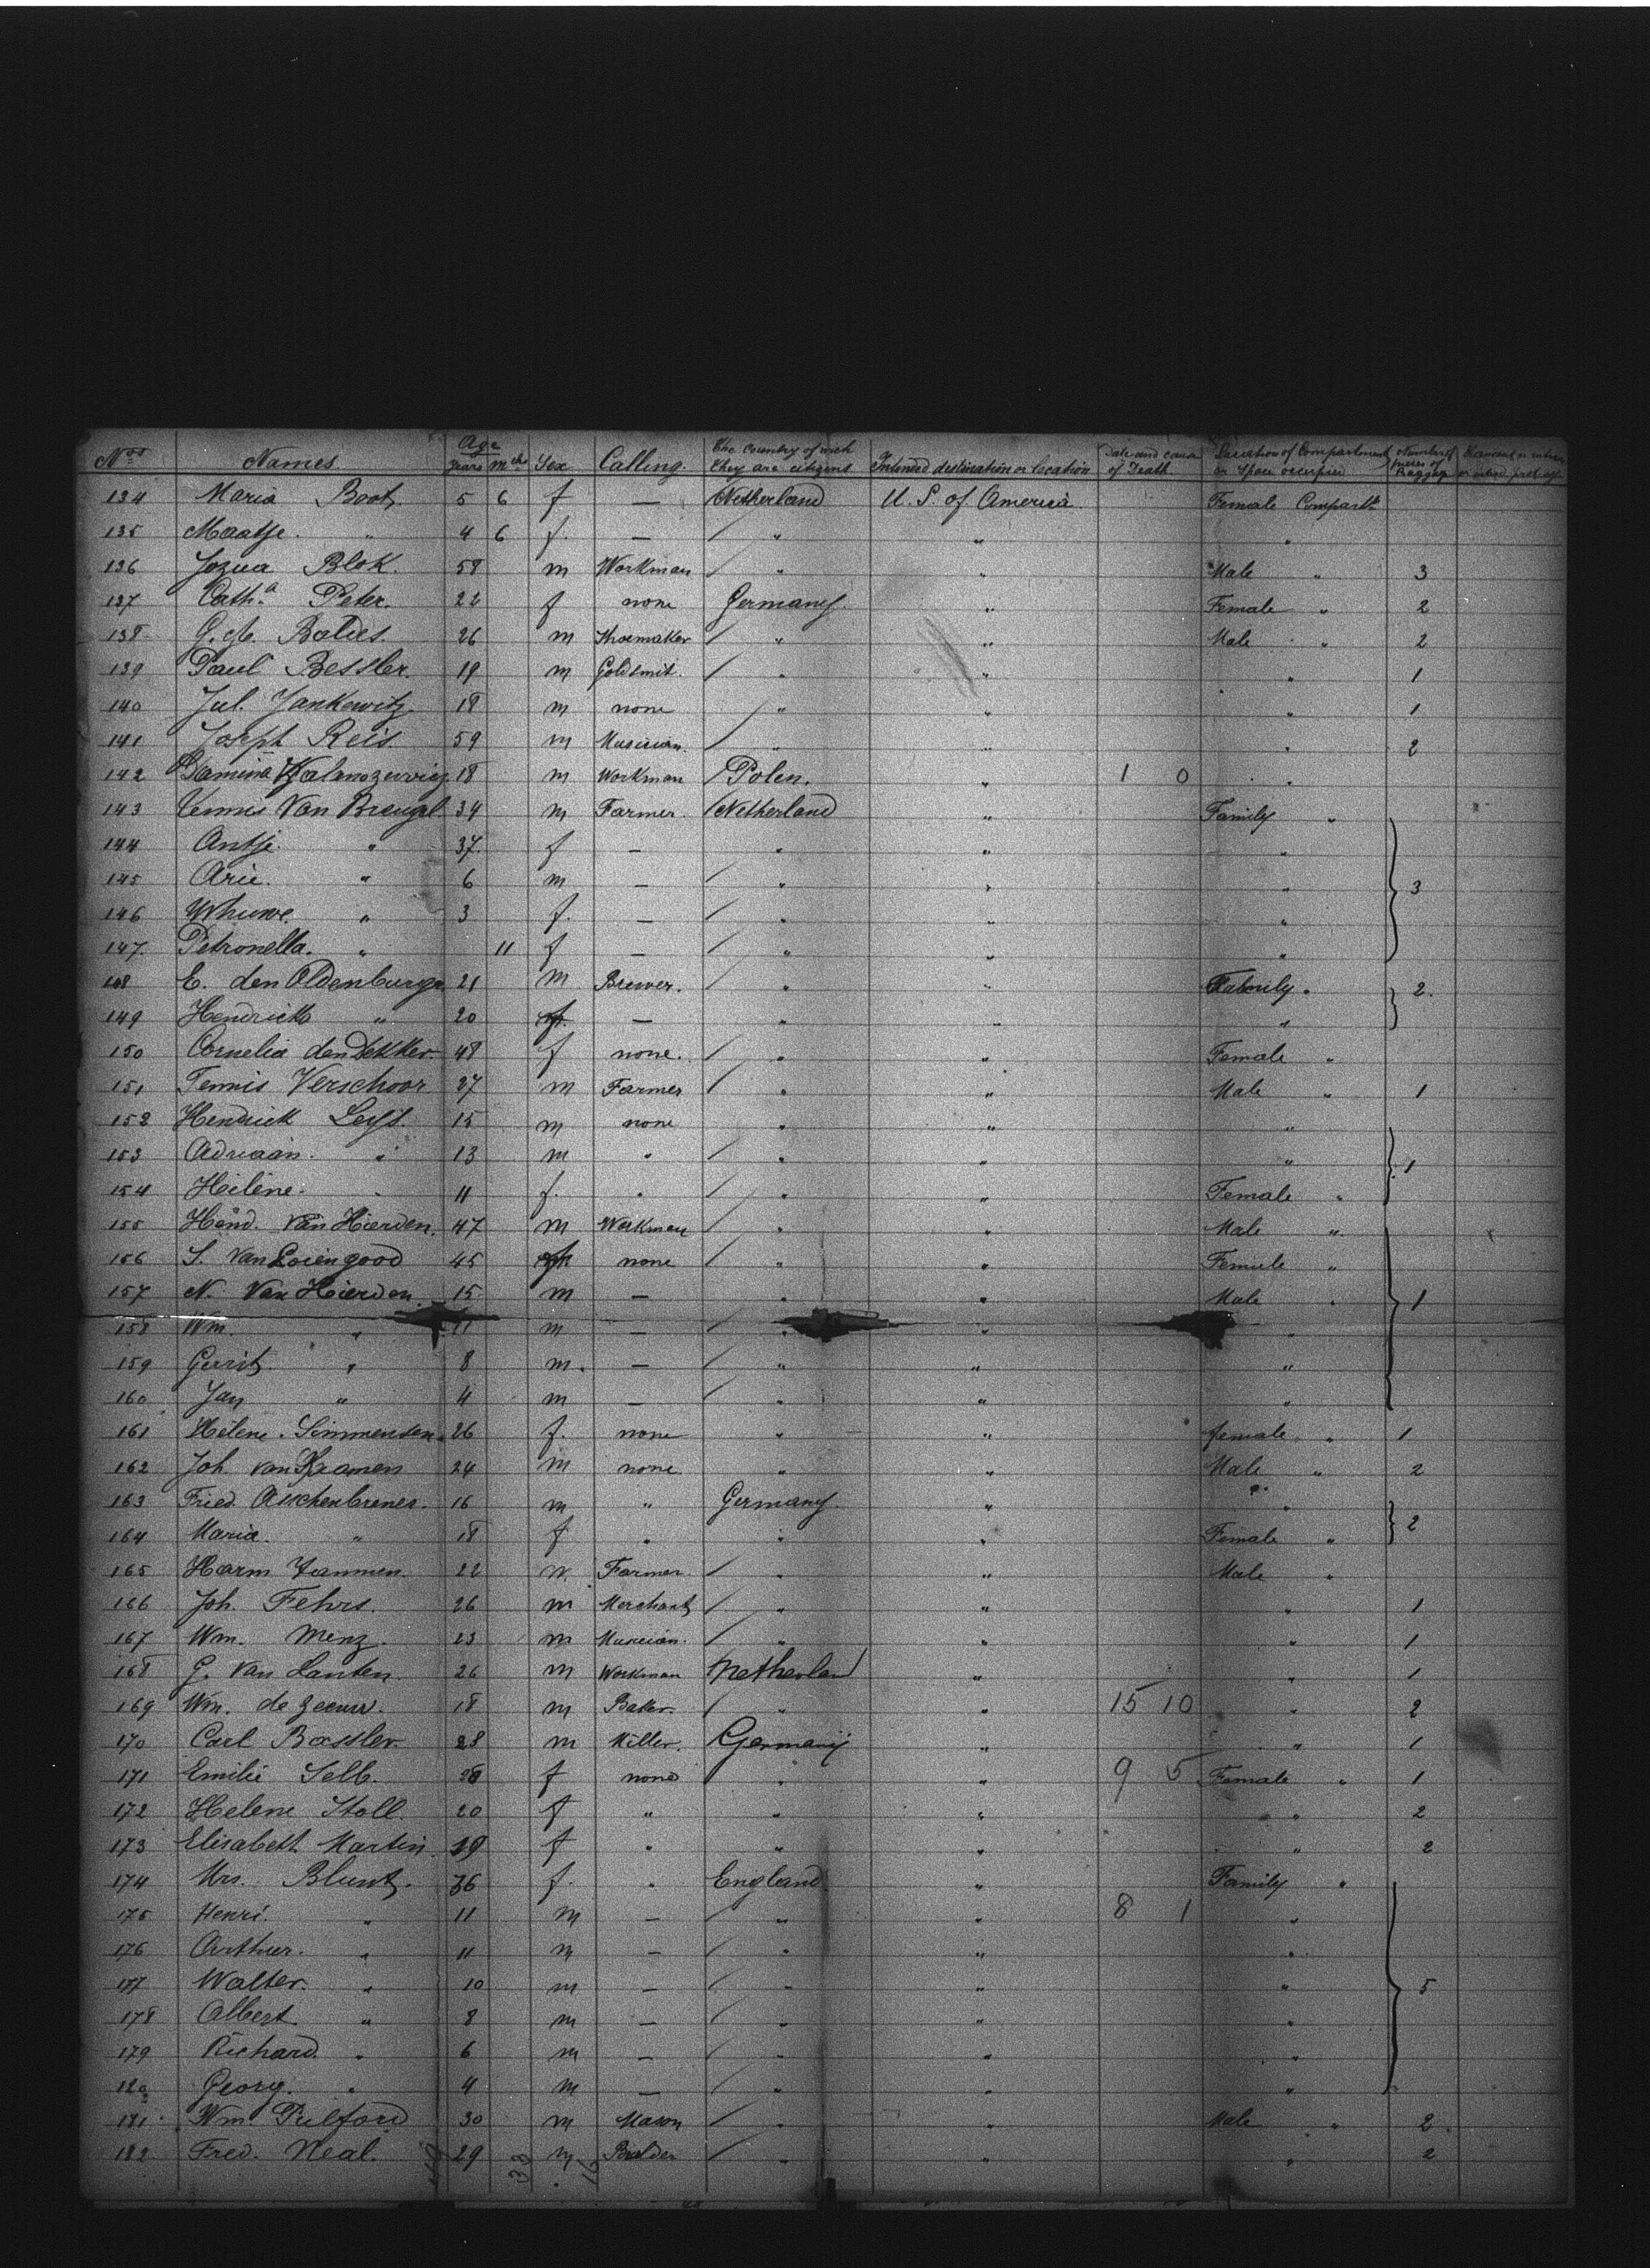 Nos Names. Age Years Mths Sex Calling. The Country of wich they are citizens Intended destination or location Date and cause of Death Situation of Compartment or Space occupied Number of pieces of Baggage
134 Maria Boot. 5 6 f — Netherland U. S. of America Female Compartt
135 Maatje. " 4 6 f. — " "
136 Jozua Blok. 58 m Workman " " Male " 3
137 Catha. Peter. 22 f none Germany. " Female " 2
138 26 m Shoemaker " " Male " 2
139 Paul Bessler. 19 m Goldsmit. " " " 1
140 Jul. Jankewitz 18 m none " " " 1
141 Joseph Reis. 59 m Musician. " " " 2
142 18 m Workman Polen. " 1 0 "
143 Van Breugel 34 m Farmer. Netherland " Family "
144 Antje " 37. f — " " "
145 Arie. " 6 m — " " " 3
146 " 3 f. — " " "
147. Petronella. " 11 f — " " "
148 E. den Oldenburger 21 m Brewer. " " Family " 2.
149 Hendrick " 20 f. — " " "
150 Cornelia den Dekker 48 f none. " " Female "
151 Tennis Verschoor 27 m Farmer " " Male " 1
152 Hendrick Leys. 15 m none " " "
153 Adriaan. " 13 m " " " " 1
154 Heléne. " 11 f. " " " Female "
155 Hend. Van Hierden. 47 m Workman " " Male "
156 S. Van 45 f none " " Female "
157 N. Van Hierden 15 m — " " Male " 1
158 Wm. " 11 m — " " "
159 Gerrit. " 8 m. — " " "
160 Jan " 4 m — " " "
161 Heléne. Simmensen 26 f. none " " female " 1
162 Joh. van 24 m none. " " Male " 2
163 Fried. Aschenbrener. 16 m " Germany. " " 2
164 Maria. " 18 f " " " Female "
165 Harm Jammen. 22 m. Farmer. " " Male "
166 Joh. Fehrs. 26 m Merchant " " " 1
167 Wm. Menz. 23 m Musician. " " " 1
168 G. Van Lanten. 26 m Workman Netherland " " 1
169 Wm. de Zeeuw. 18 m Baker " " 15 10 " 2
170 Carl Bassler. 28 m Miller. Germany " " 1
171 Emilie Selb. f none " " 9 5 Female " 1
172 Helene Stoll 20 f " " " " 2
173 Elisabeth Martin. 19 f " " " " 2
174 Mrs. Blunt. 36 f. " England " Family "
175 Henri. " 11 m — " " 8 1 "
176 Arthur. " 11 m — " " "
177 Walter. " 10 m — " " " 5
178 Albert " 8 m — " " "
179 Richard. " 6 m — " " "
180 Georg. " 4 m — " " "
181. Wm. Pulford 30 m Mason " " Male " 2
182. Fred. Neal. 29 m Builder " " " 2